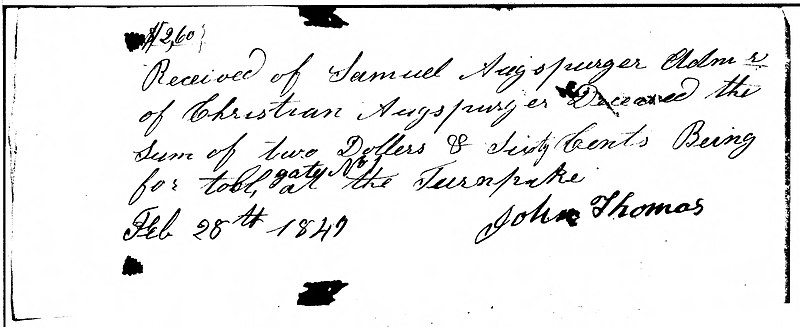 $2,60
Received of Samuel Augspurger Admr
of Christian Augspurger Deceased the
sum of two Dollers & Sixty Cents Being
for toll, gate No 1 at the Turnpike
Feb 28th 1849
John Thomas